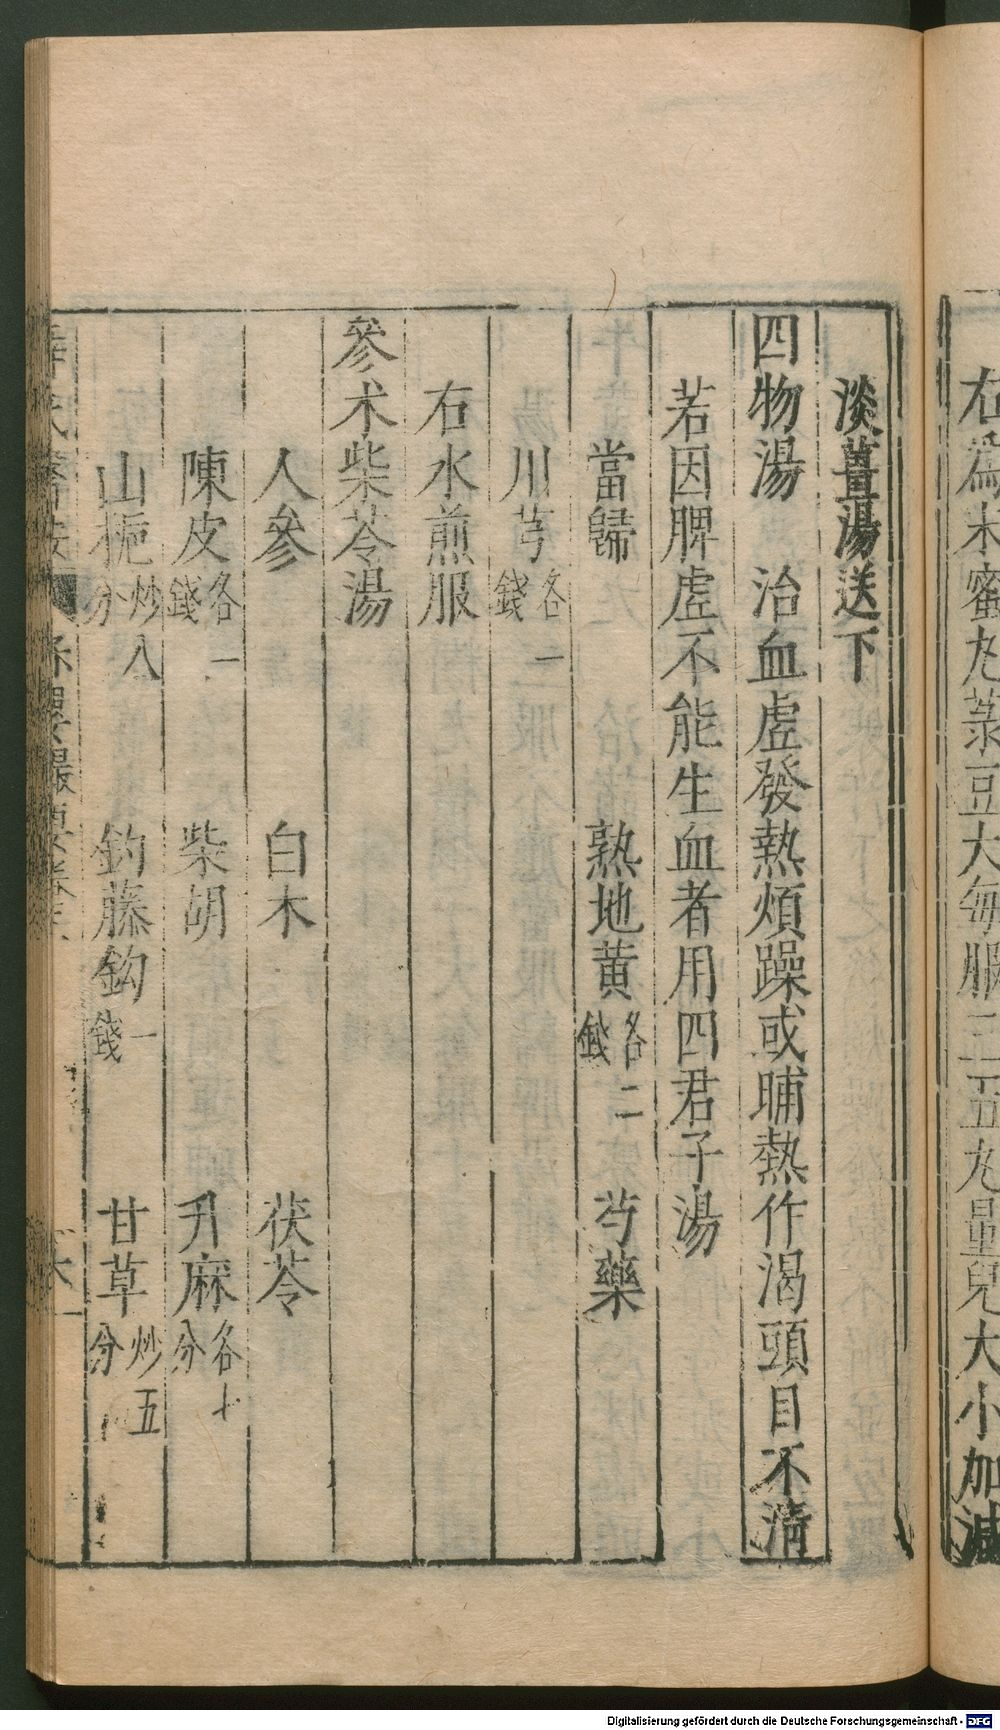 右為末蜜丸菉豆大每服三五丸量兒大小加減
淡薑湯送下
四物湯　治血虛發熱煩躁或晡熱作渴頭目不清
若因脾虛不能生血者用四君子湯
當歸　熟地黃各二錢　芍藥
川芎各一錢
右水煎服
參朮柴苓湯
人參　白木　茯苓
陳皮各一錢　柴胡　升麻各七分
山梔炒八分　釣藤鈎一錢　甘草炒五分
保嬰撮要卷
Digitalisierung gefördert durch die Deutsche Forschungsgemeinschaft - DFG